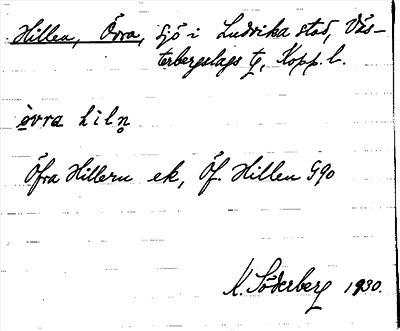 Hillen, Övra, sjö i Ludvika stad, Väs-
terbergslags tg, Kopp. l.
òvra hiln̥
Öfra Hillern ek, Öf. Hillen G90
K. Söderberg 1930.